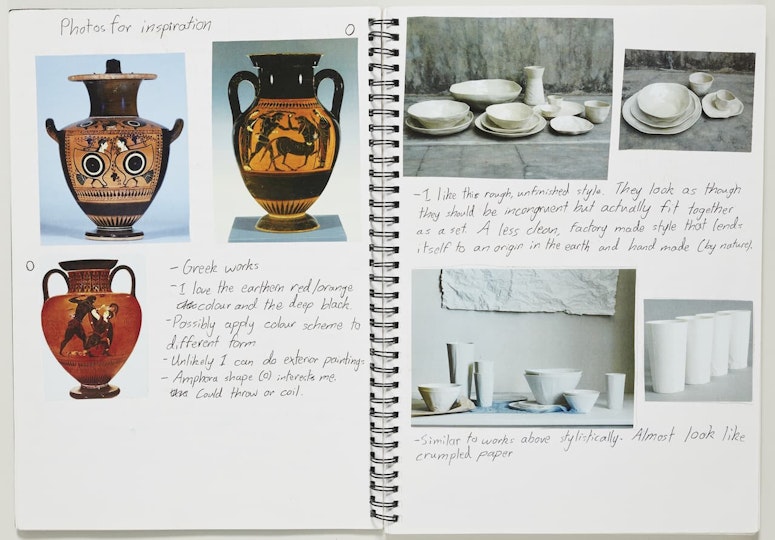 Photos for inspiration
O
O
- Greek works
- I love the earthern red/orange
colour and the deep black.
- Possibly apply colour scheme to
different form
- Unlikely I can do exterior paintings.
- Amphora shape (O) interests me.
Could throw or coil.
- I like this rough, unfinished style. They look as though
they should be incongruent but actually fit together
as a set. A less clean, factory made style that lends
itself to an origin in the earth and hand made (by nature).
- Similar to works above stylistically. Almost look like
crumpled paper